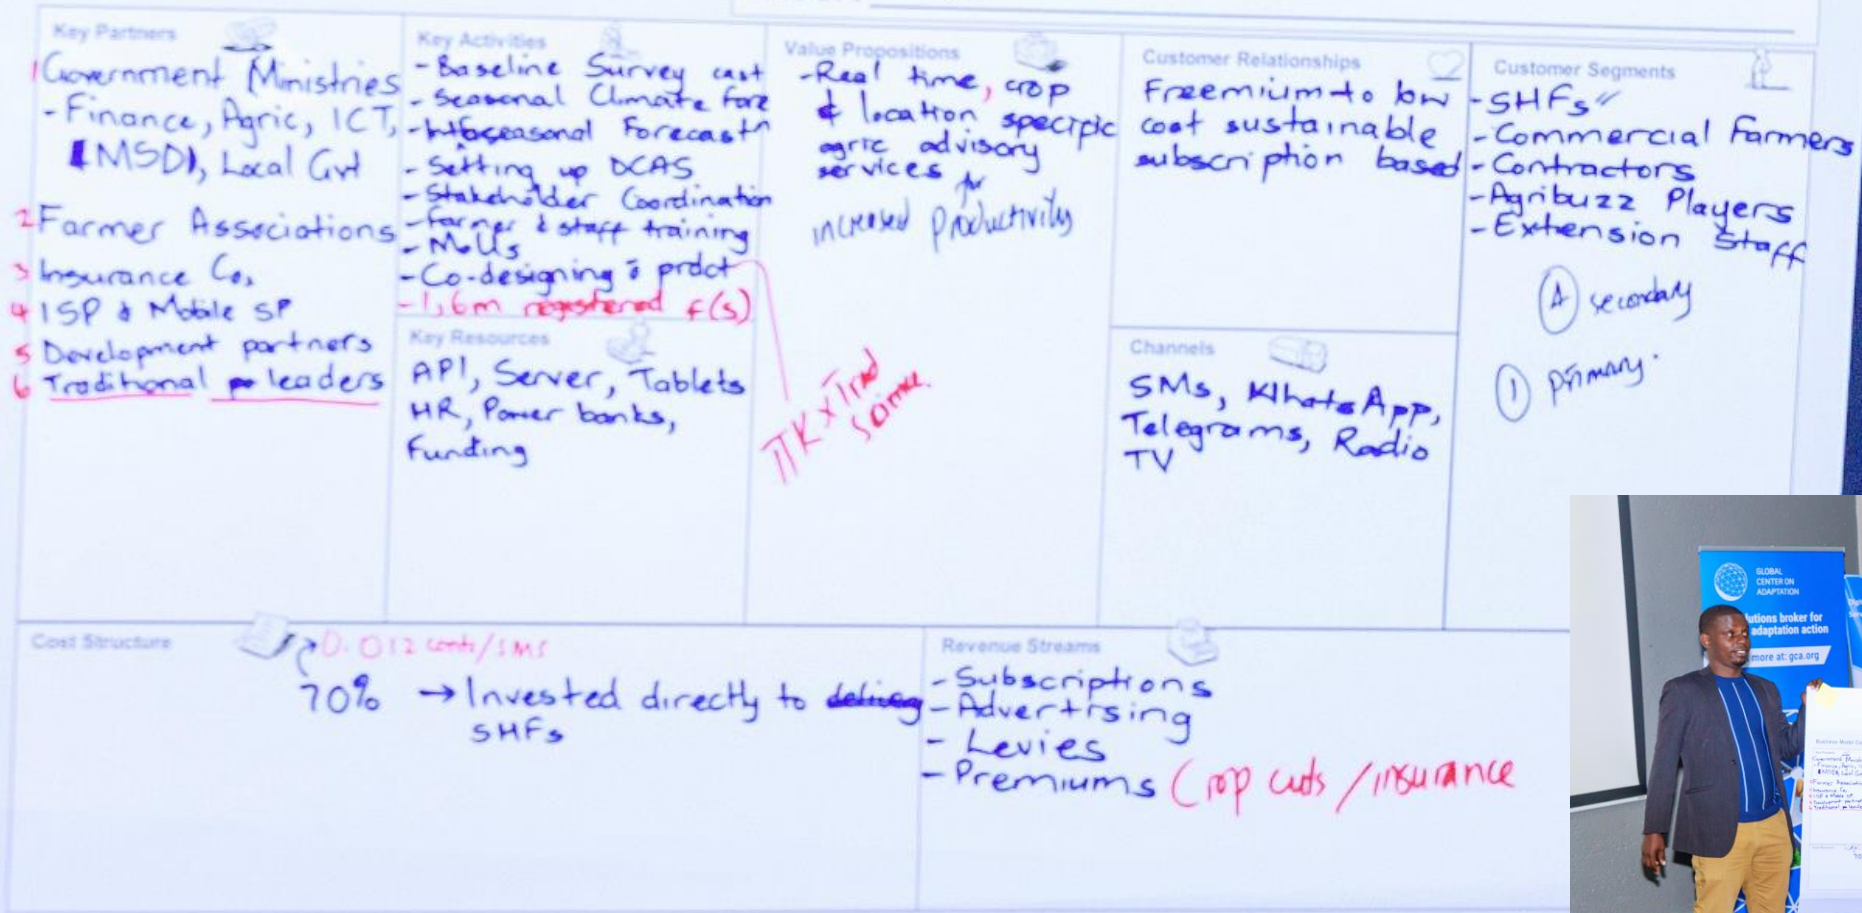 Key Partners
1 Government Ministries
- Finance, Agric, ICT,
(MSD), Local Gvt
2 Farmer Associations
3 Insurance Co,
4 ISP & Mobile SP
5 Development partners
6 Traditional leaders
Key Activities
- Baseline Survey cast
- Seasonal Climate Fore
Forecastn
- Setting up DCAS
- Stakeholder Coordination
- Farmer & staff training
- MoUs
- Co-designing prdct
- 1,6m registered f(s)
Key Resources
API, Server, Tablets
HR, Power banks,
Funding
Value Propositions
- Real time, crop
& location specific
agric advisory
services for
increased productivity
ITK x Trad
Science
Customer Relationships
Freemium to low
cost sustainable
subscription based
Channels
SMs, WhatsApp,
Telegrams, Radio
TV
Customer Segments
- SHFs"
- Commercial Farmers
- Contractors
- Agribuzz Players
- Extension Staff
4 secondary
1 primary.
Cost Structure
0.012 cents/SMS
70% → Invested directly to delivery
SHFs
Revenue Streams
- Subscriptions
- Advertising
- Levies
- Premiums Crop cuts / insurance
GLOBAL
CENTER ON
ADAPTATION
utions broker for
adaptation action
more at: gca.org